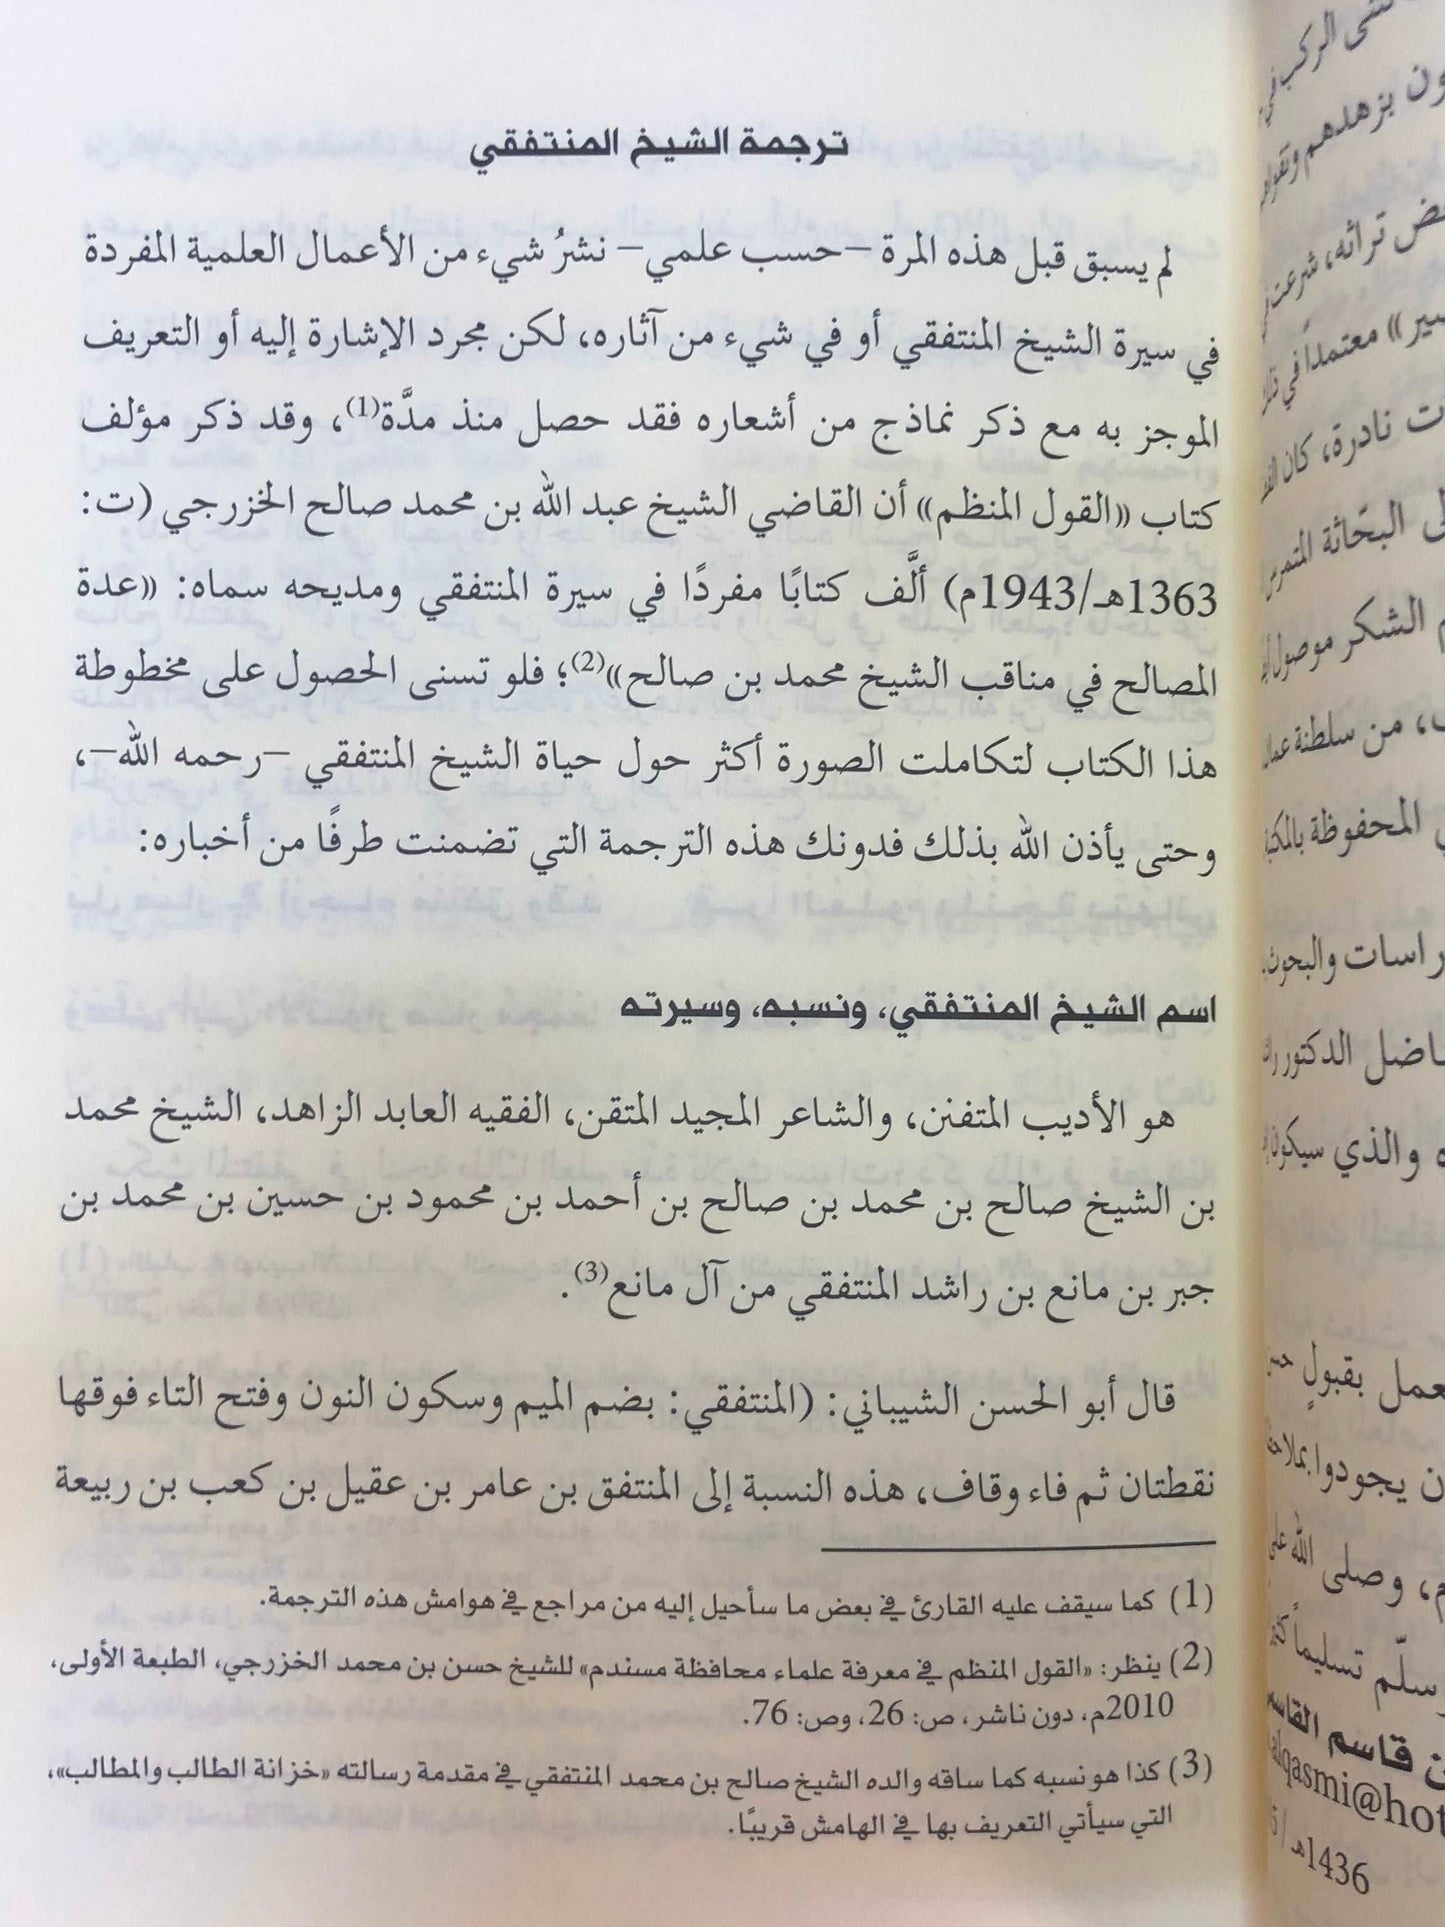 ترجمة الشيخ المنتفقي
لم يسبق قبل هذه المرة –حسب علمي– نشرُ شيء من الأعمال العلمية المفردة
في سيرة الشيخ المنتفقي أو في شيء من آثاره، لكن مجرد الإشارة إليه أو التعريف
الموجز به مع ذكر نماذج من أشعاره فقد حصل منذ مدَّة(1)، وقد ذكر مؤلف
كتاب «القول المنظم» أن القاضي الشيخ عبد الله بن محمد صالح الخزرجي (ت:
1363هـ/1943م) ألَّف كتابًا مفردًا في سيرة المنتفقي ومديحه سماه: «عدة
المصالح في مناقب الشيخ محمد بن صالح»(2)؛ فلو تسنى الحصول على مخطوطة
هذا الكتاب لتكاملت الصورة أكثر حول حياة الشيخ المنتفقي –رحمه الله–،
وحتى يأذن الله بذلك فدونك هذه الترجمة التي تضمنت طرفًا من أخباره:
اسم الشيخ المنتفقي، ونسبه، وسيرته
هو الأديب المتفنن، والشاعر المجيد المتقن، الفقيه العابد الزاهد، الشيخ محمد
بن الشيخ صالح بن محمد بن صالح بن أحمد بن محمود بن حسين بن محمد بن
جبر بن مانع بن راشد المنتفقي من آل مانع(3).
قال أبو الحسن الشيباني: (المنتفقي: بضم الميم وسكون النون وفتح التاء فوقها
نقطتان ثم فاء وقاف، هذه النسبة إلى المنتفق بن عامر بن عقيل بن كعب بن ربيعة
(1) كما سيقف عليه القارئ في بعض ما سأحيل إليه من مراجع في هوامش هذه الترجمة.
(2) ينظر: «القول المنظم في معرفة علماء محافظة مسندم» للشيخ حسن بن محمد الخزرجي، الطبعة الأولى،
2010م، دون ناشر، ص: 26، وص: 76.
(3) كذا هو نسبه كما ساقه والده الشيخ صالح بن محمد المنتفقي في مقدمة رسالته «خزانة الطالب والمطالب»،
التي سيأتي التعريف بها في الهامش قريبًا.
الركب في
ون بزهدهم
تراثه، شرعت
معتمداً في
نادرة، كان
البحّاثة
الشكر موصول
من سلطنة عمان
المحفوظة
والبحوث
الدكتور
والذي سيكون
بقبولٍ
يجودوا
وصلى الله على
وسلّم تسليماً
قاسم
alqasmi@hot
1436هـ